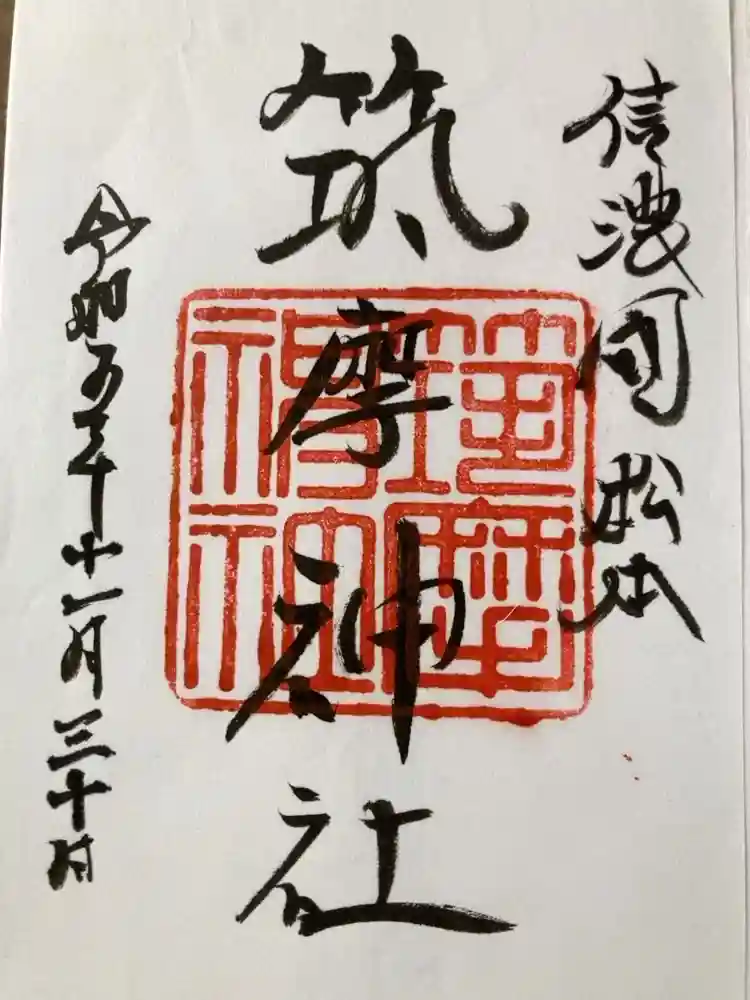 信濃国松本
筑摩神社
筑摩神社
令和五年十一月三十日